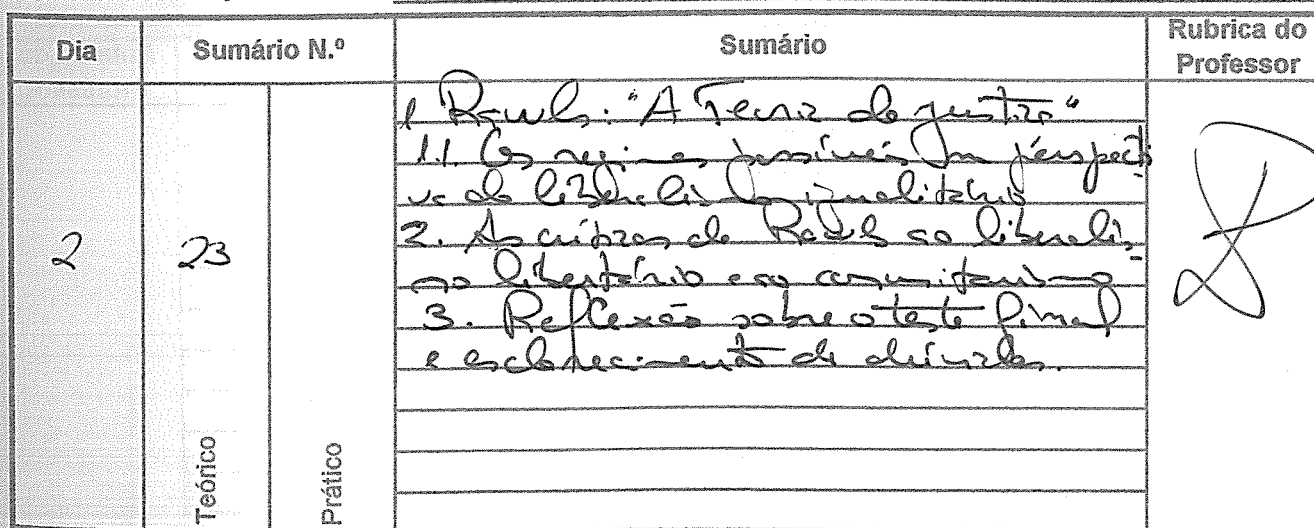 Dia Sumário N.º Sumário Rubrica do Professor
1 Rawls: "A Teoria da Justiça"
1.1. Os regimes possíveis na perspecti-
va do liberalismo igualitário
2 23 2. As críticas de Rawls ao liberalis-
mo libertário e ao comunitarismo
3. Reflexão sobre o teste final
e esclarecimento de dúvidas.
Teórico Prático